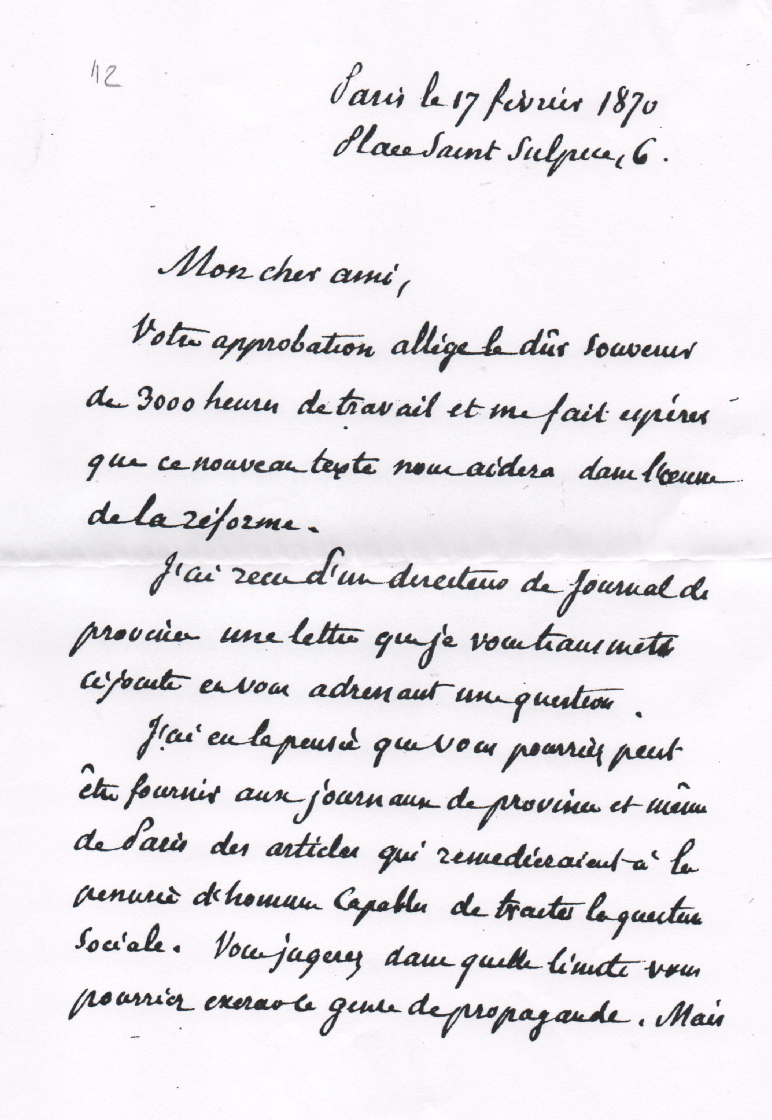 42
Paris le 17 février 1870
Place Saint Sulpice, 6.
Mon cher ami,
Votre approbation allège le dûr souvenir
de 3000 heures de travail et me fait espérer
que ce nouveau texte nous aidera dans l'œuvre
de la réforme.
J'ai reçu d'un directeur de Journal de
province une lettre que je vous transmets
ci jointe en vous adressant une question.
J'ai eu la pensée que vous pourriez peut
être fournir aux journaux de province et même
de Paris des articles qui remedieraient à la
penurie d'hommes capables de traiter la question
sociale. Vous jugerez dans quelle limite vous
pourriez exercer ce genre de propagande. Mais